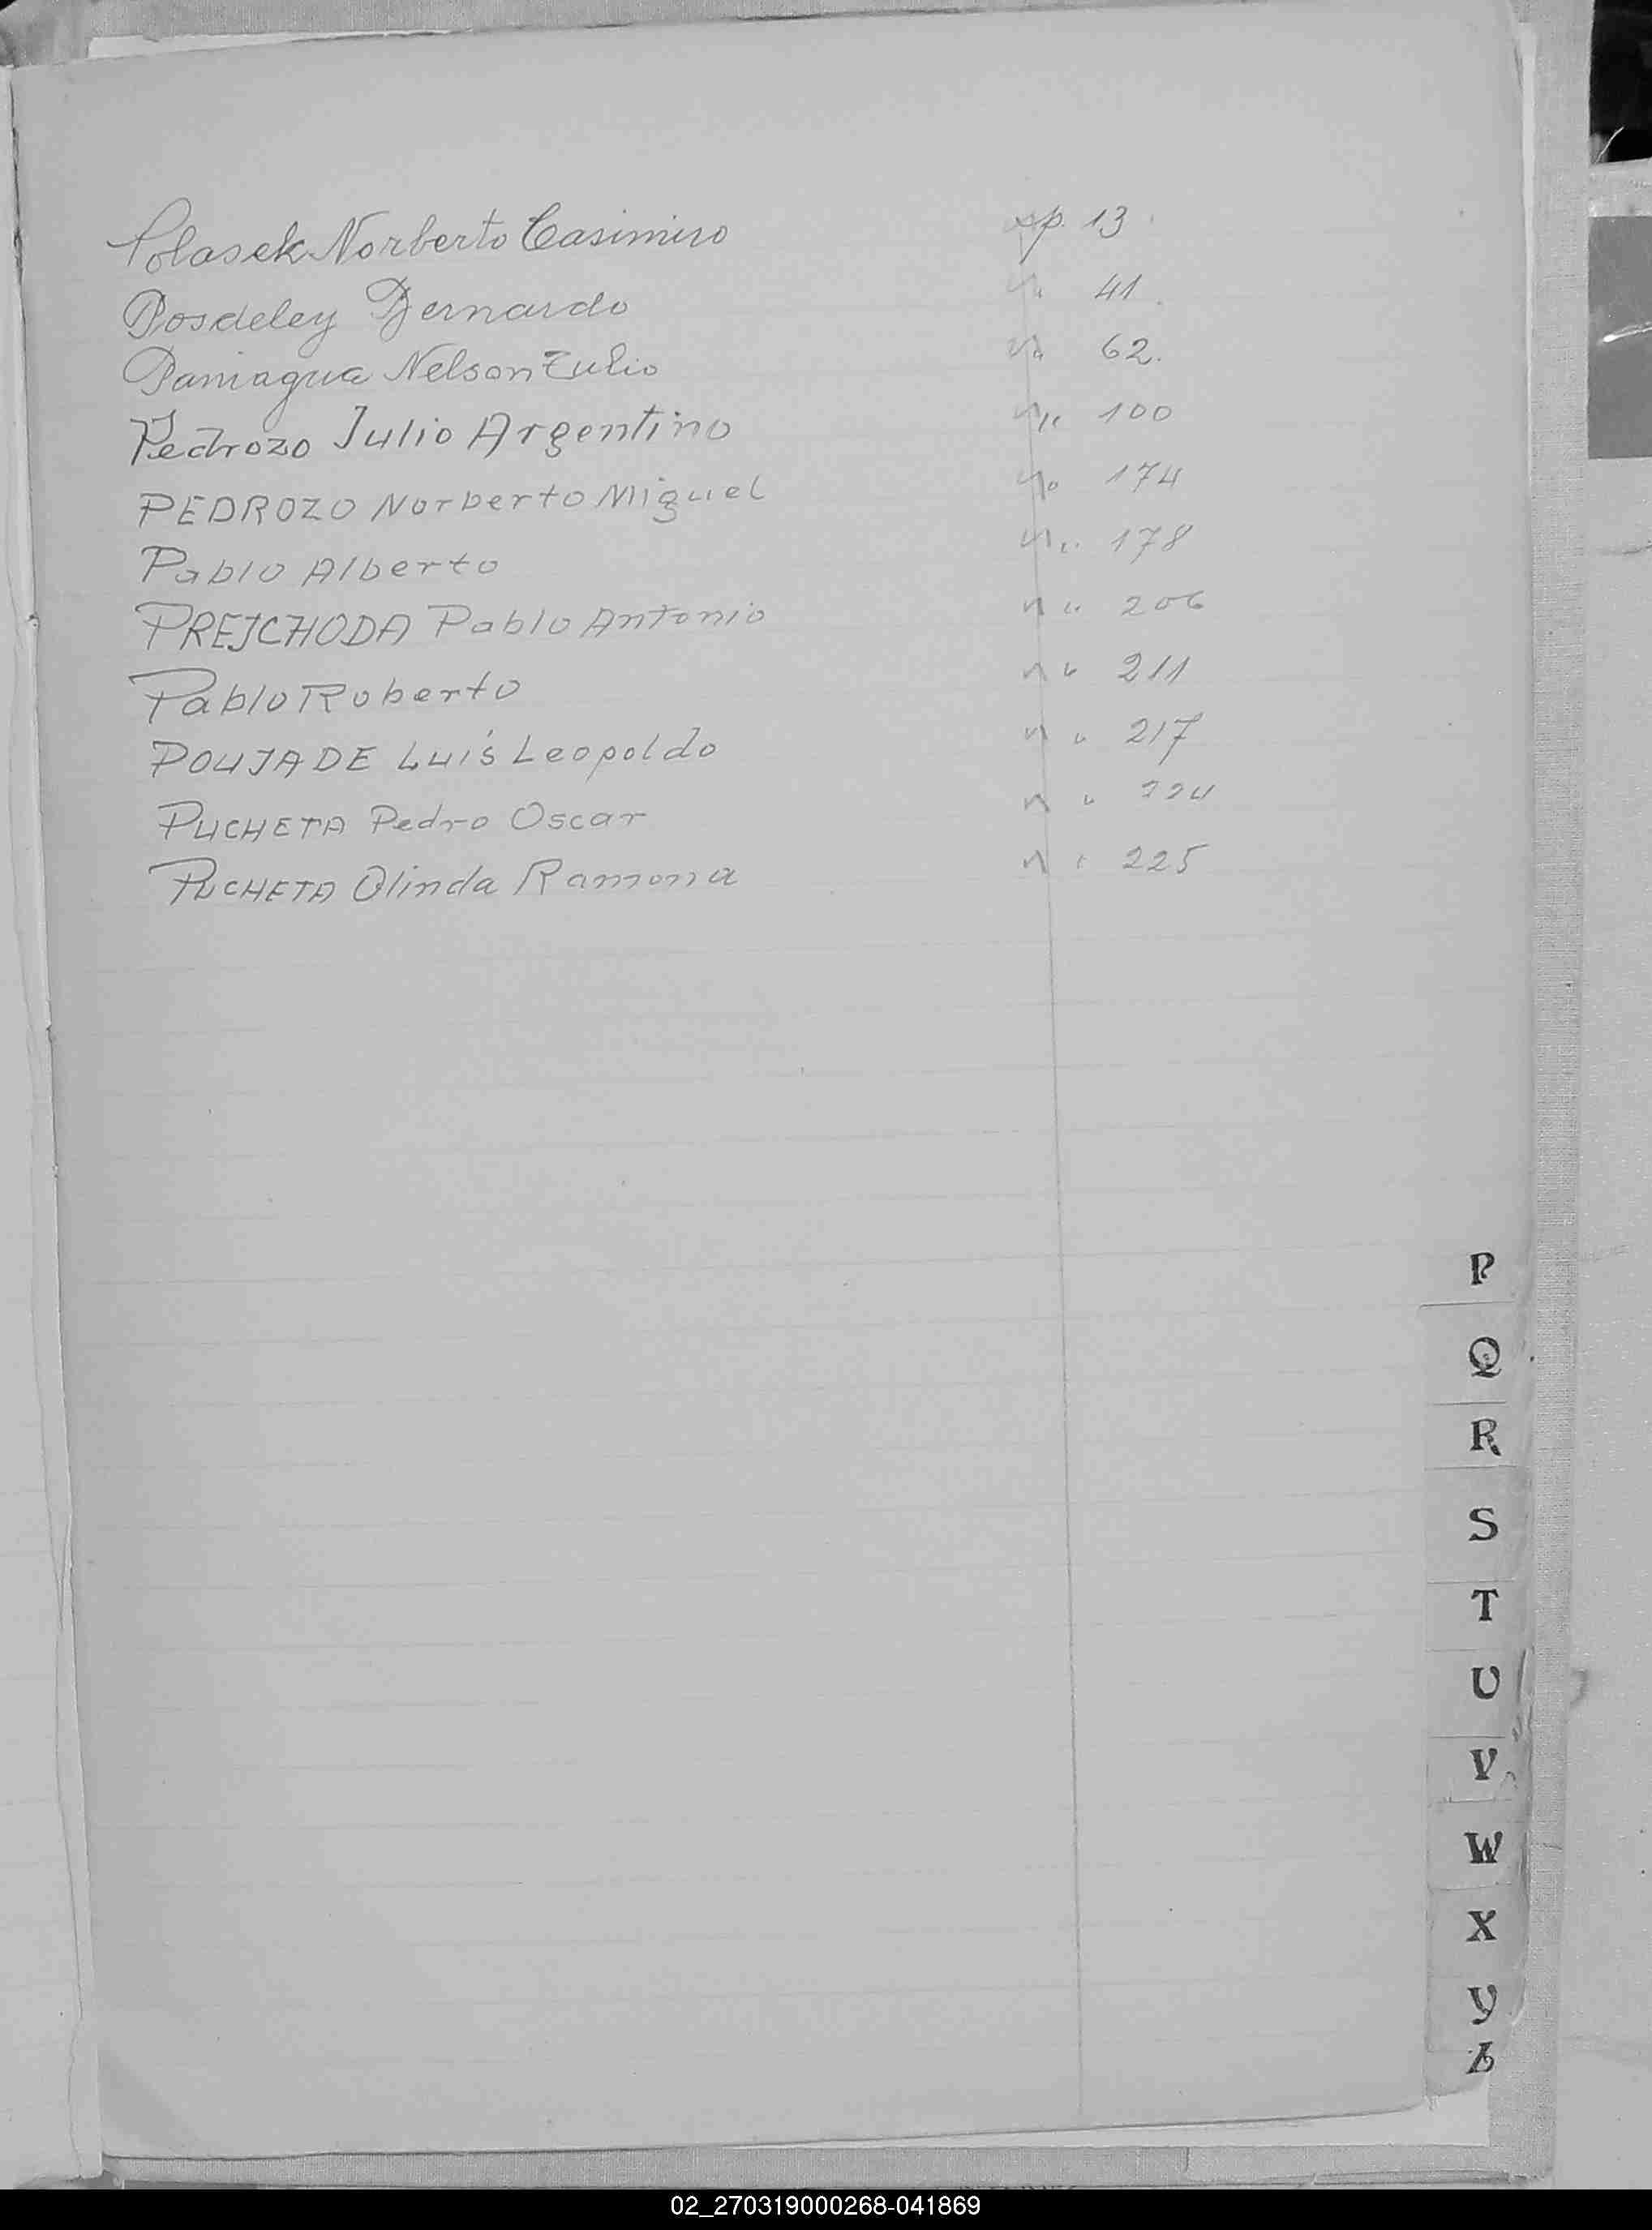 Polasek Norberto Casimiro xp. 13.
Posdeley Bernardo " 41.
Paniagua Nelson Tulio " 62.
Pedrozo Julio Argentino " 100
PEDROZO Norberto Miguel " 174
Pablo Alberto " 178
PREJCHODA Pablo Antonio " 206
Pablo Roberto " 211
POUJADE Luís Leopoldo " 217
PUCHETA Pedro Oscar " 224
PUCHETA Olinda Ramona " 225
P
Q
R
S
T
U
V
W
X
Y
Z
02_270319000268-041869